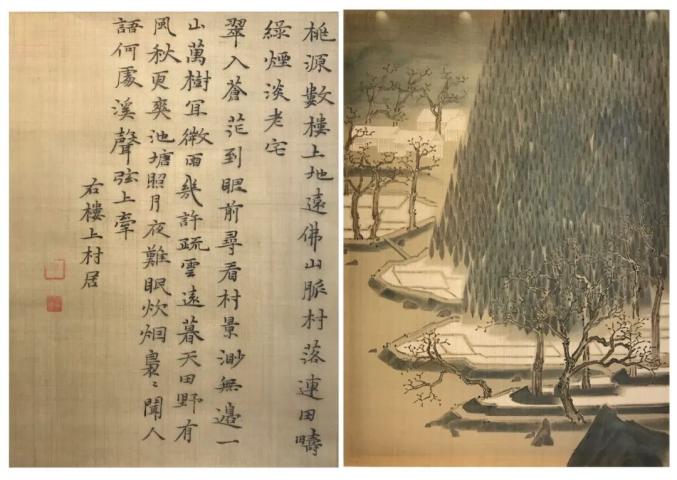 桃源數樓上地遠佛山脈村落連田疇
綠煙淡老宅
翠入蒼茫到眼前尋看村景渺無邊一
山萬樹冝微雨幾許疏雲遠暮天田野有
風秋更爽池塘照月夜難眠炊烟裊〻聞人
語何處溪聲弦上牽
右樓上村居